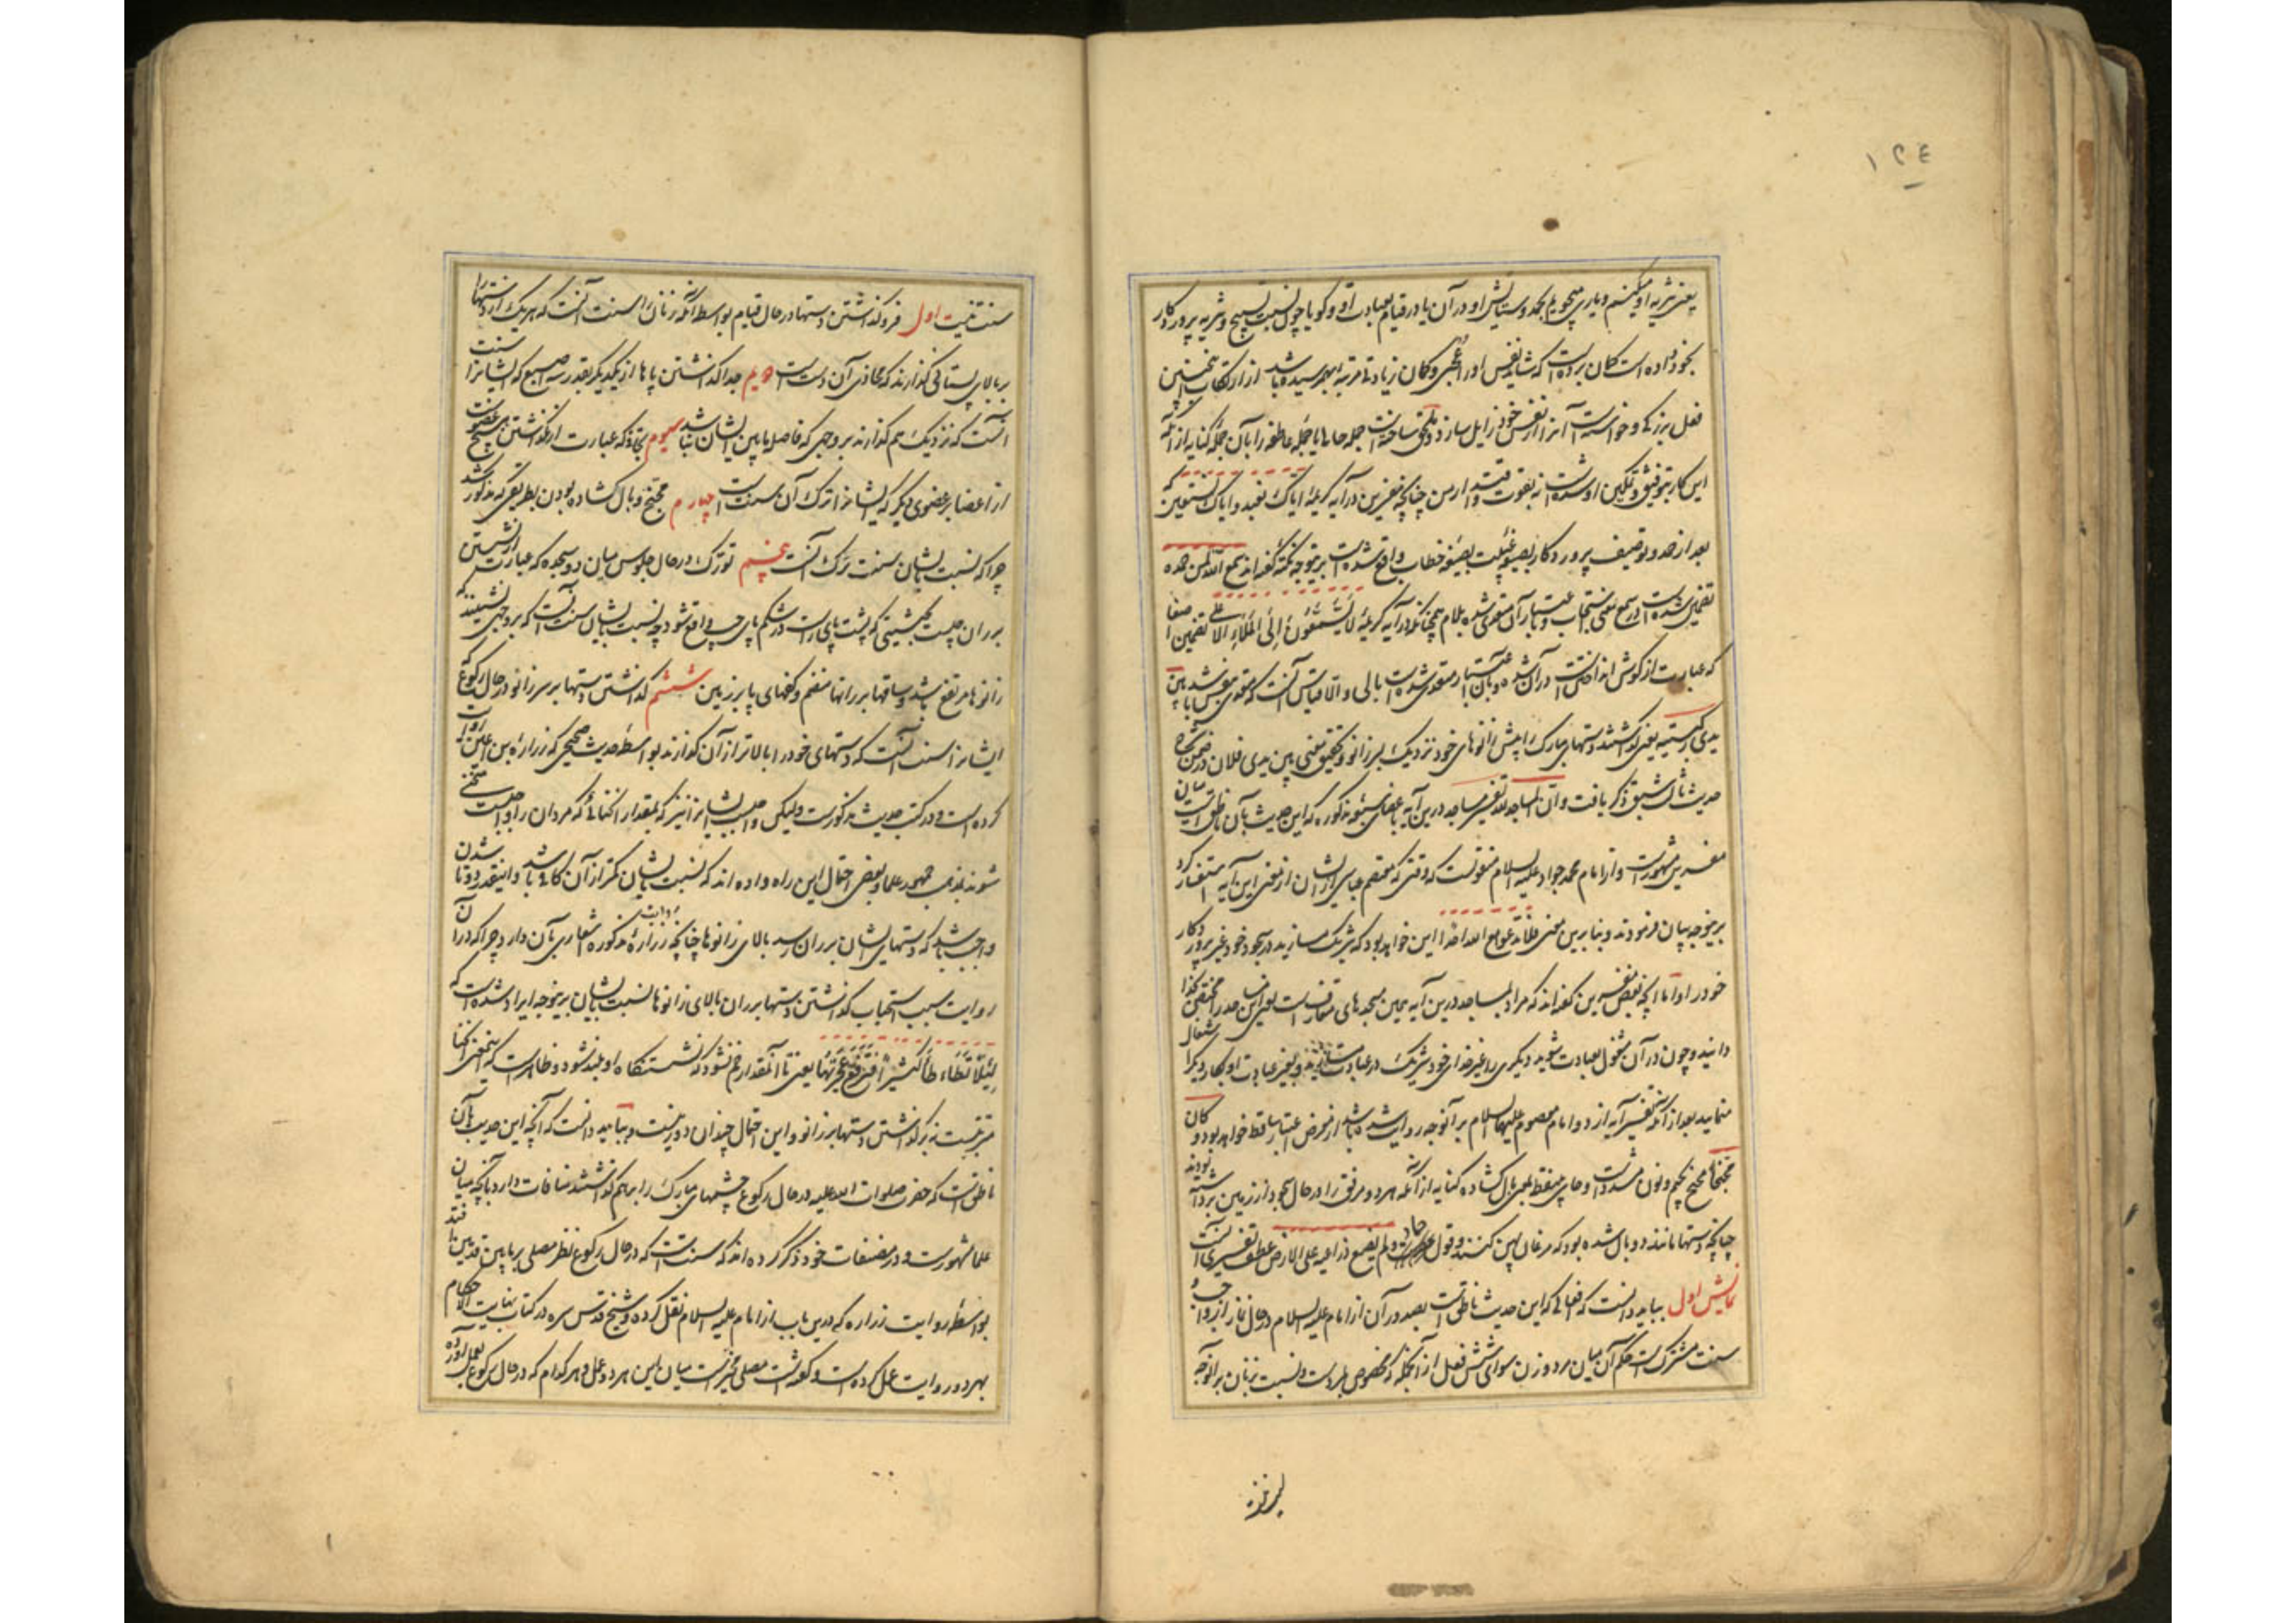 ١٢٤
یعنی تنزیه او میکنم و یاری میجویم بحمد و ستایش او در آن یا در قیام بعبادت او و گویا چون نسبت تسبیح و تنزیه پروردگار
بخود داده است گمان برده است که شاید نفس او را عجبی و گمان زیادتی مرتبه بهم رسیده باشد از ارتکاب چنین
فعل بزرگی و خواسته است آنرا از نفس خود زایل سازد و ملحق ساخته است جمله حالیه یا جمله عاطفه را بآن جمله کنایه از آنکه
این کار بتوفیق و تمکین او شده است نه بقوت و اقتدار من چنانچه مفسرین در آیه کریمه ایاک نعبد و ایاک نستعین که
بعد از حمد و توصیف پروردگار بصیغه غیبت بصیغه خطاب واقع شده است برینوجه نکته گفته اند سمع الله لمن حمده
تضمین شده است در سمع معنی استجاب و باعتبار آن متعدی شده بلام همچنانکه در آیه کریمه لا یسمعون الی الملاء الاعلی تضمین اصغا
که عبارت از گوش انداختنست در آن شده و بآن اعتبار متعدی شده است بالی و الا قیاس آنست که متعدی بنفس باشد بین
یدی رکبتیه یعنی گذاشتند دستهای مبارک را پیش زانوهای خود نزدیک بسر زانو و تحقیق معنی بین یدی فلان در ضمن شرح
حدیث ثالث سبق ذکر یافت و ان المساجد لله تفسیر مساجد درین آیه باعضای سبعه مذکوره که این حدیث بآن ناطق است میان
مفسرین مشهورست و از امام محمد جواد علیه السلام منقولست که وقتی که معتصم عباسی از ایشان از معنی این آیه استفسار کرد
برینوجه بیان فرمودند و بنا برین معنی فلا تدعوا مع الله احدا این خواهد بود که شریک مسازید در سجود خود غیر پروردگار
خود را و اما آنچه بعضی مفسرین گفته اند که مراد بمساجد درین آیه همین مسجدهای متعارف است یعنی این مساجد را مختص خدا
دانید و چون در آن مشغول بعبادت شوید دیگری را غیر خدای خود شریک در عبادت مسازید و بغیر عبادت او بکار دیگر اشتغال
منمایید بعد از آنکه تفسیر آیه از دو امام معصوم علیهما السلام بر آنوجه روایت شده باشد از معرض اعتبار ساقط خواهد بود و کان
مجنحا مجنح بجیم و نون مشدد است و حای بینقطه بمعنی بال گشاده کنایه از آنکه هر دو مرفق را در حال سجود از زمین برداشته بودند
چنانچه دستها مانند دو بال شده بود که مرغان پهن کنند و قول حماد و لم یضع ذراعیه علی الارض عطف تفسیری آنست
نمایش اول بباید دانست که افعالی که این حدیث ناطق است بصدور آن از امام علیه السلام در حال نماز از واجب و
سنت مشترک است حکم آن میان مرد و زن سوای شش فعل از آنجمله که مخصوص بمردست و نسبت بزنان بر آنوجه
سنت نیست اول فروگذاشتن دستها در حال قیام بواسطه آنکه زنان را سنت آنست که هر یک از دستها را
بر بالای پستانی گذارند که محاذی آن دست است دویم جدا گذاشتن پاها از یکدیگر بقدر سه اصبع که ایشانرا سنت
آنست که نزدیک هم گذارند بروجهی که فاصله مابین ایشان نباشد سیوم تجافی که عبارت از نگذاشتن هیچ عضویست
از اعضا بر عضوی دیگر که ایشانرا ترک آن سنت است چهارم مجنح و بال گشاده بودن بطریقی که مذکور شد
چراکه نسبت بایشان سنت ترک آنست پنجم تورک در حال جلوس میان دو سجده که عبارت از نشستن
بر ران چپست بحیثیتی که پشت پای راست در شکم پای چپ واقع شود چه نسبت بایشان سنت آنست که بروجهی نشینند که
زانوها مرتفع باشد و ساقها برانها منضم و کفهای پا بر زمین ششم گذاشتن دستها بر سر زانو در حال رکوع که
ایشانرا سنت آنست که دستهای خود را بالاتر از آن گذارند بواسطه حدیث صحیحی که زراره بن اعین روایت
کرده است و در کتب حدیث مذکورست ولیکن واجبست ایشانرا نیز که بمقدار انحنائی که مردان را واجبست منحنی
شوند بمذهب جمهور علما و بعضی احتمال این راه داده اند که نسبت بایشان کمتر از آن کافی باشد و اینقدر دوتا شدن
واجب باشد که دستهای ایشان بر ران رسد بالای زانوها چنانچه روایت زراره مذکوره اشعاری بآن دارد چراکه در آن
روایت سبب استحباب گذاشتن دستها بر ران بالای زانوها نسبت بایشان برینوجه ایراد شده است که
لئلا تطاطا کثیرا فترتفع عجیزتها یعنی تا آنمقدار خم نشود که نشستنگاه او بلند شود و ظاهرست که اینمعنی بر انحنا
مترتبست نه بر گذاشتن دستها بر زانو و این احتمال چندان دور نیست و بباید دانست که آنچه این حدیث بآن
ناطق است که حضرت صلوات الله علیه در حال رکوع چشمهای مبارک را بر هم گذاشتند منافات دارد بآنچه میان
علما مشهورست و در مصنفات خود ذکر کرده اند که سنت است که در حال رکوع نظر مصلی بر مابین قدمین افتد
بواسطه روایت زراره که درین باب از امام علیه السلام نقل کرده و شیخ قدس سره در کتاب نهایت الاحکام
بهر دو روایت عمل کرده است و گفته است مصلی مخیرست میان این هر دو عمل و هر کدام که در حال رکوع بعمل آورده